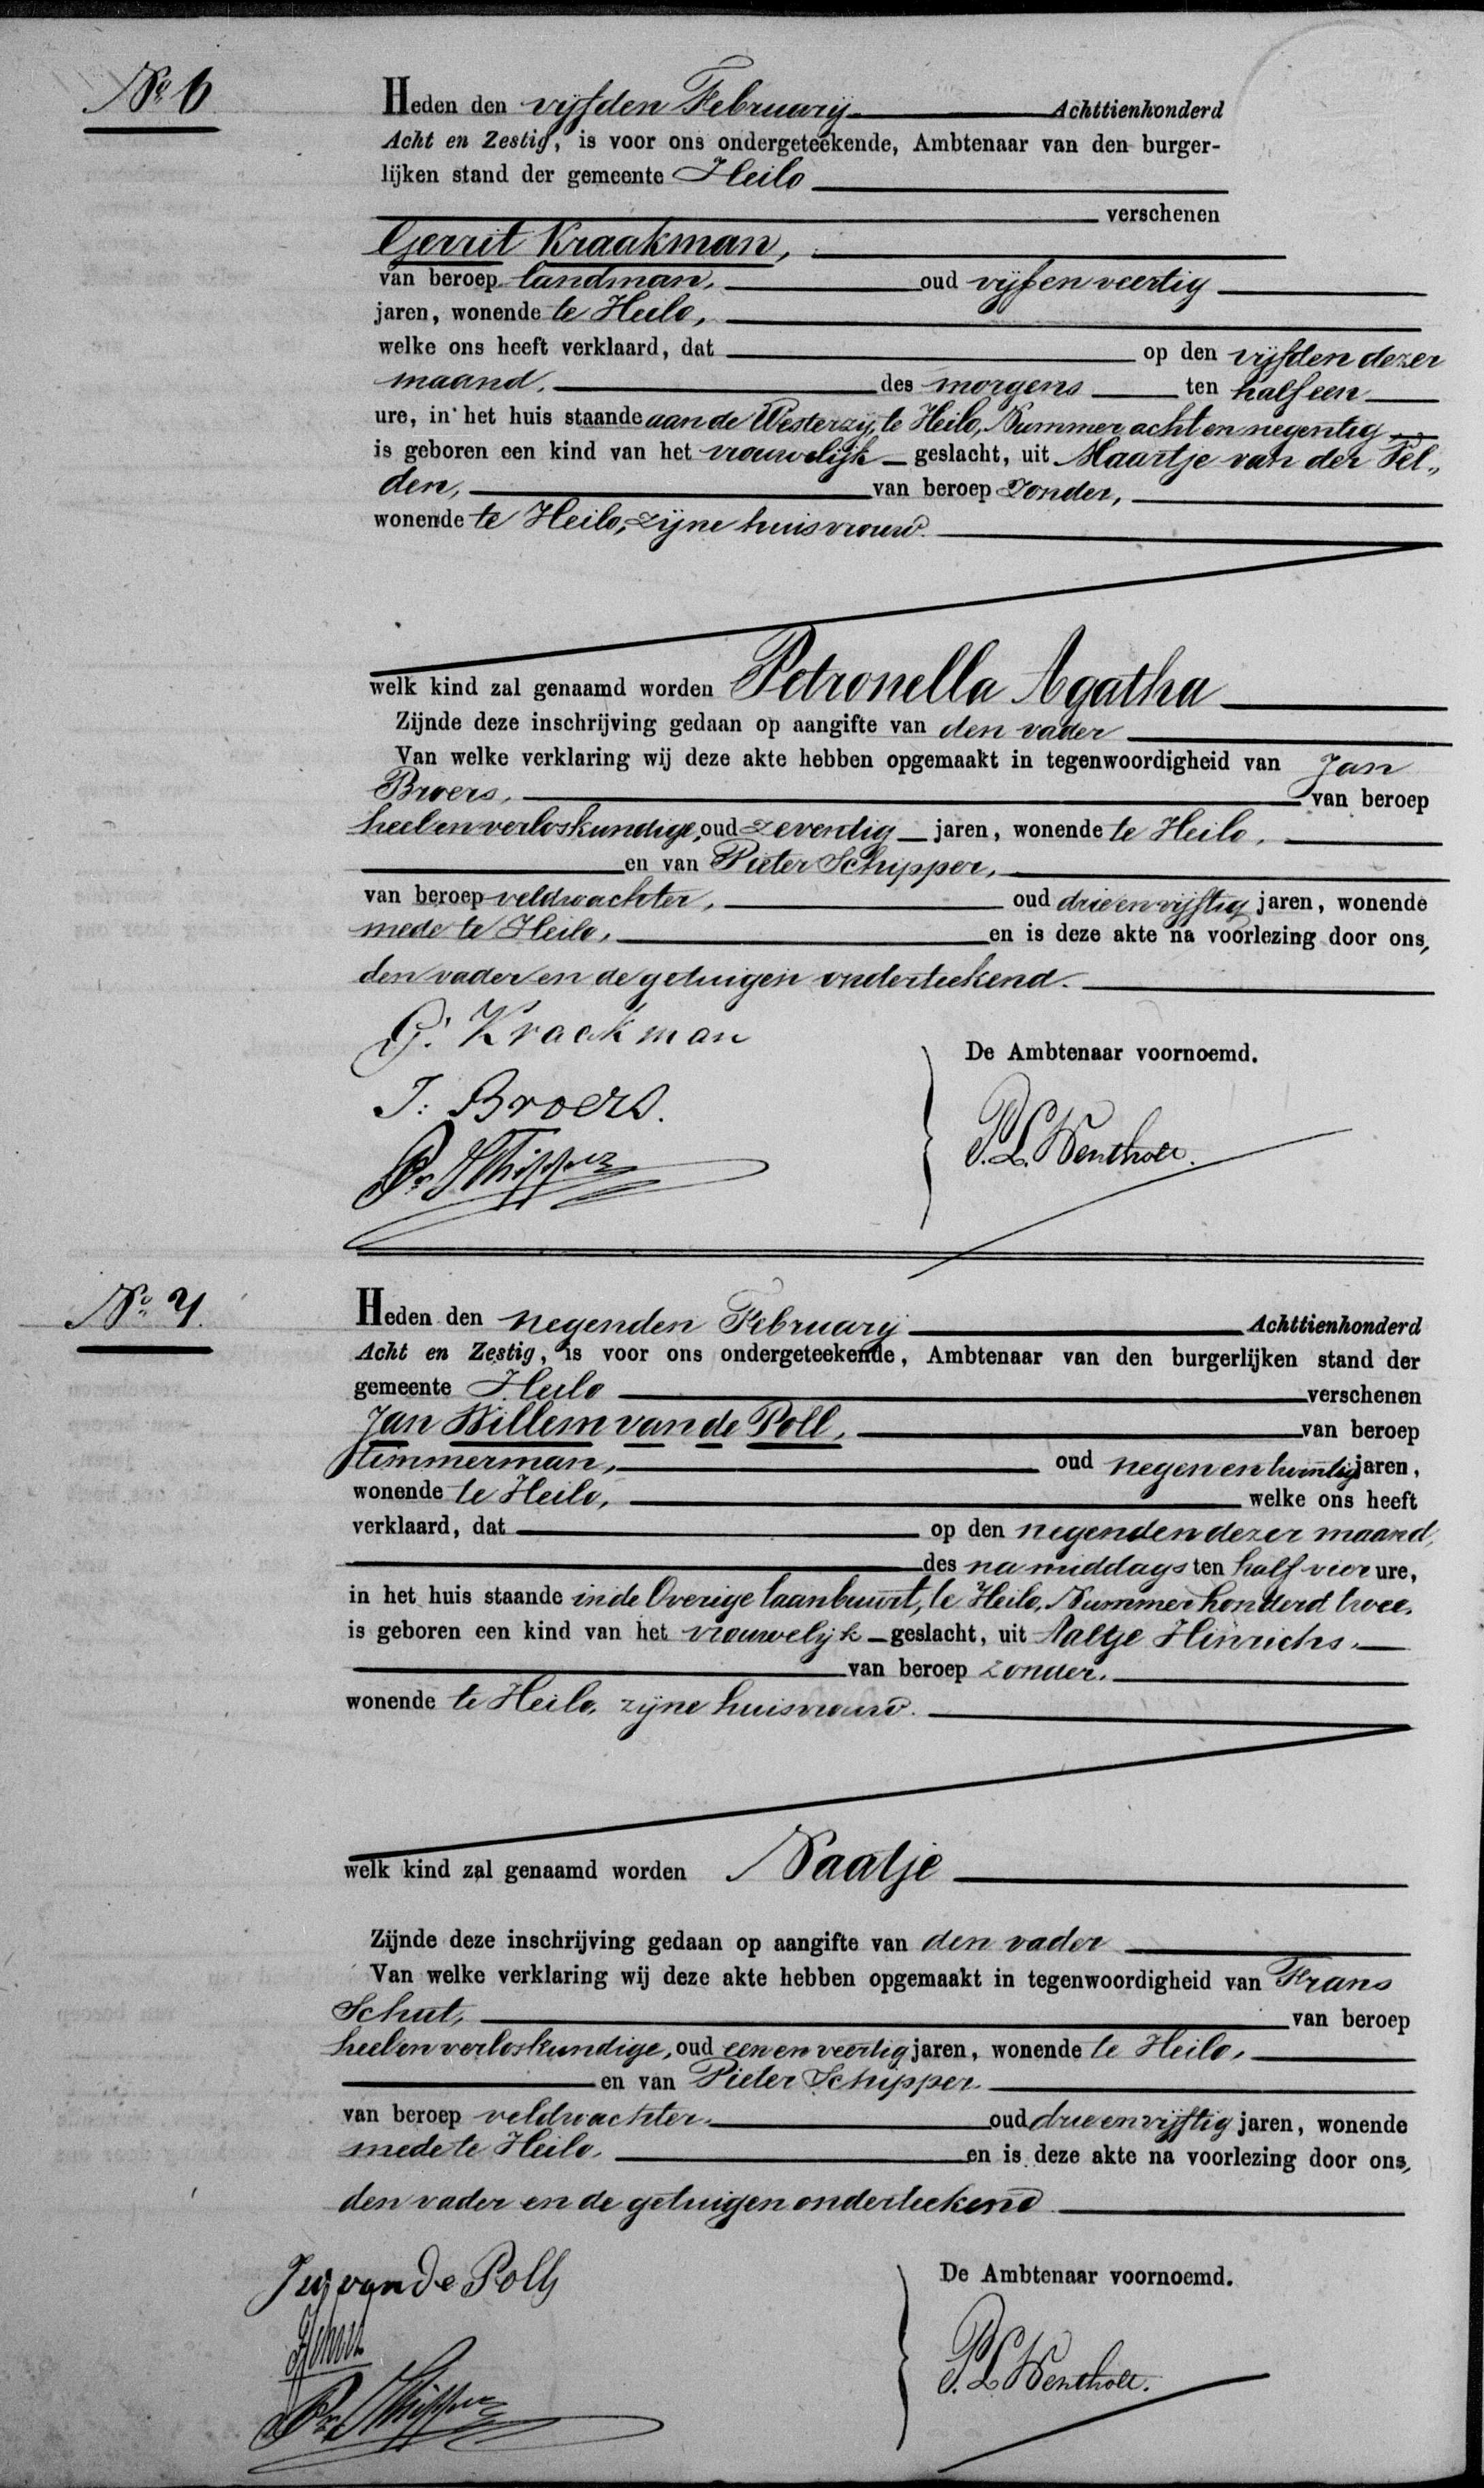 No 6
Heden den vijfden February Achttienhonderd
Acht en Zestig, is voor ons ondergeteekende, Ambtenaar van den burger-
lijken stand der gemeente Heilo
verschenen
Gerrit Kraakman,
van beroep landman, oud vijf en veertig
jaren, wonende te Heilo,
welke ons heeft verklaard, dat op den vijfden dezer
maand, des morgens ten half een
ure, in het huis staande aan de Westerzij, te Heilo, Nummer acht en negentig
is geboren een kind van het vrouwelijk geslacht, uit Maartje van der Pel„
den, van beroep zonder,
wonende te Heilo, zijne huisvrouw.
welk kind zal genaamd worden Petronella Agatha
Zijnde deze inschrijving gedaan op aangifte van den vader
Van welke verklaring wij deze akte hebben opgemaakt in tegenwoordigheid van Jan
Broers, van beroep
heel en verloskundige, oud zeventig jaren, wonende te Heilo,
en van Pieter Schipper,
van beroep veldwachter, oud drie en vijftig jaren, wonende
mede te Heilo, en is deze akte na voorlezing door ons,
den vader en de getuigen onderteekend.
G. Kraakman
De Ambtenaar voornoemd.
J. Broers.
P. L. Wentholt.
Pr. Schipper
No 7.
Heden den negenden February Achttienhonderd
Acht en Zestig, is voor ons ondergeteekende, Ambtenaar van den burgerlijken stand der
gemeente Heilo verschenen
Jan Willem van de Poll, van beroep
timmerman, oud negen en twintig jaren,
wonende te Heilo, welke ons heeft
verklaard, dat op den negenden dezer maand,
des namiddags ten half vier ure,
in het huis staande in de Overige laanbuurt, te Heilo, Nummer honderd twee,
is geboren een kind van het vrouwelijk geslacht, uit Aaltje Hinrichs,
van beroep zonder,
wonende te Heilo, zijne huisvrouw.
welk kind zal genaamd worden Naatje
Zijnde deze inschrijving gedaan op aangifte van den vader
Van welke verklaring wij deze akte hebben opgemaakt in tegenwoordigheid van Frans
Schut, van beroep
heel en verloskundige, oud een en veertig jaren, wonende te Heilo,
en van Pieter Schipper
van beroep veldwachter, oud drie en vijftig jaren, wonende
mede te Heilo, en is deze akte na voorlezing door ons,
den vader en de getuigen onderteekend
JW van de Poll
De Ambtenaar voornoemd.
P. L. Wentholt.
Pr. Schipper